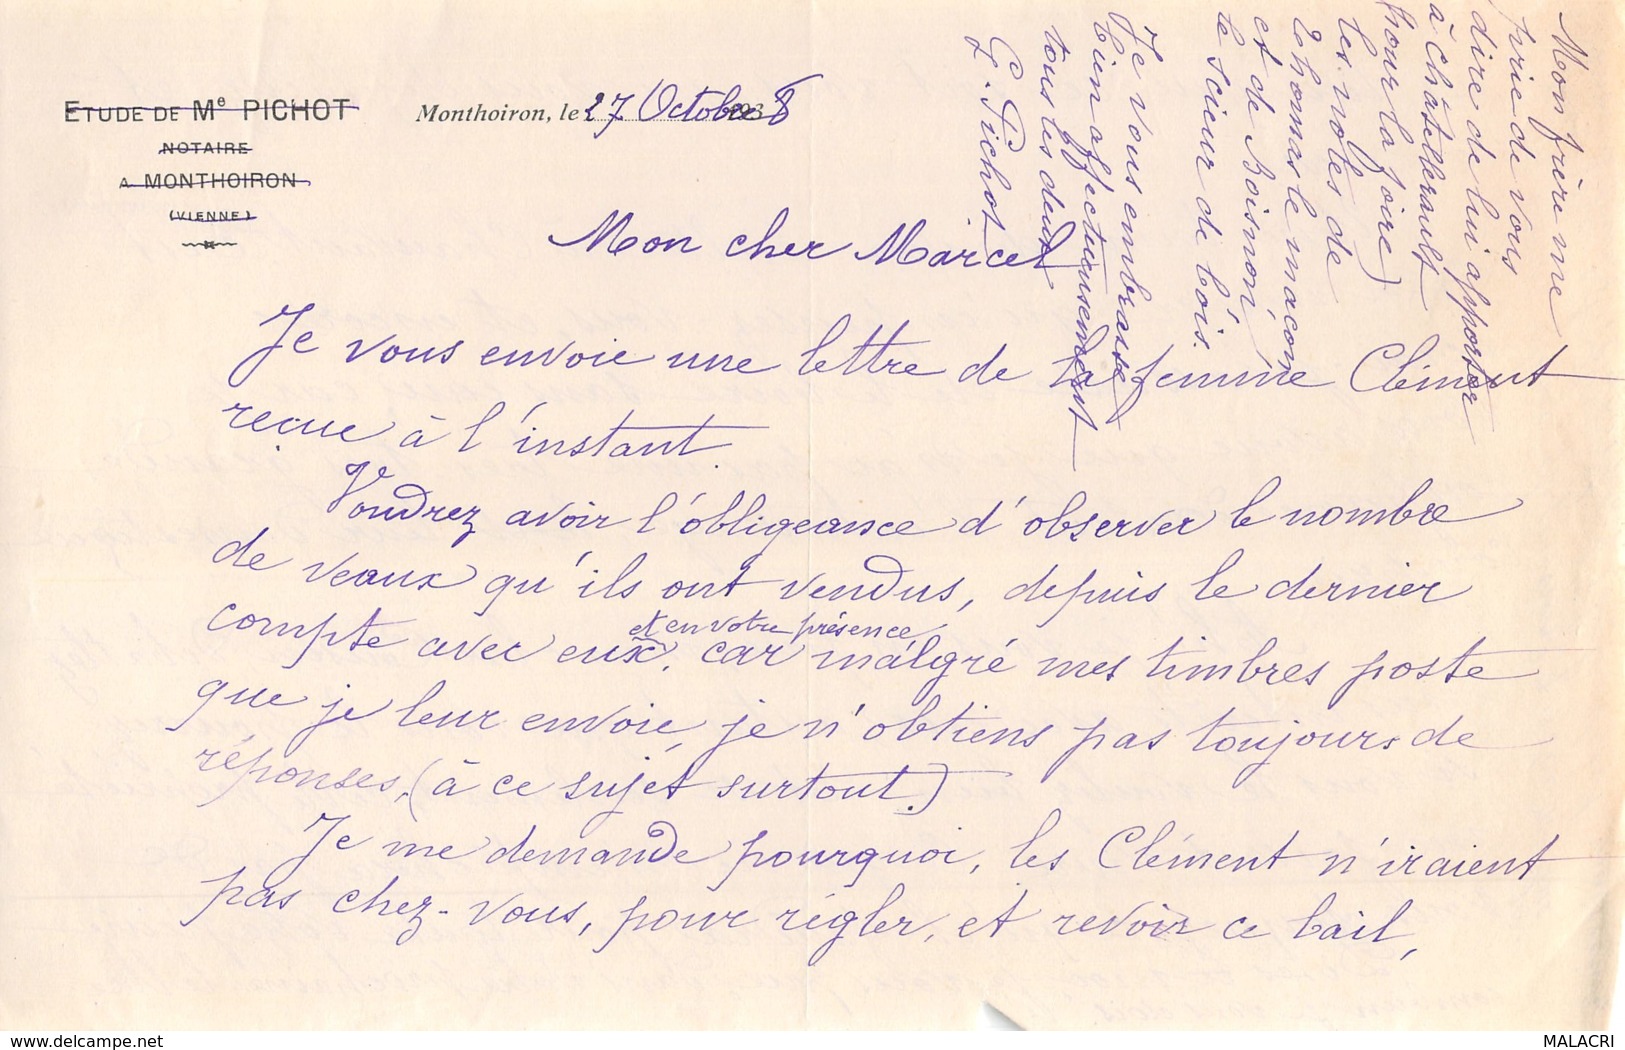 ETUDE DE Me PICHOT
NOTAIRE
A MONTHOIRON
(VIENNE)
Monthoiron, le 27 Octobre 1938
Mon cher Marcel
Je vous envoie une lettre de la femme Clément
reçue à l'instant.
Voudrez avoir l'obligeance d'observer le nombre
de veaux qu'ils ont vendus, depuis le dernier
compte avec eux, et en votre présence car malgré mes timbres poste
que je leur envoie, je n'obtiens pas toujours de
réponses, (à ce sujet surtout.)
Je me demande pourquoi, les Clément n'iraient
pas chez-vous, pour régler, et revoir ce bail,
Mon frère me
prie de vous
dire de lui apporter
à Châtellerault
(pour la foire)
les notes de
Thomas le maçon
et de Boismon
le scieur de bois.
Je vous embrasse
bien affectueusement
tous les deux
G. Pichot
MALACRI